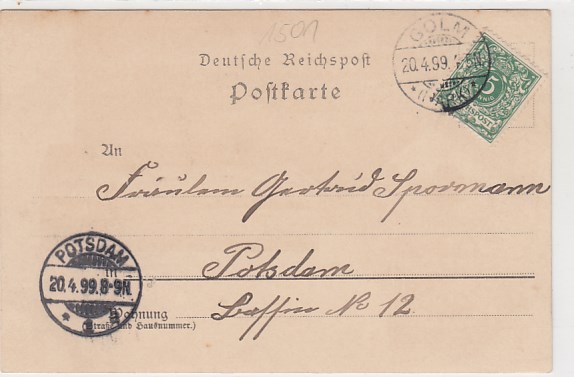 1501
GOLM
20.4.99.
Deutsche Reichspost
Postkarte
5
An
Fräulein Gertrud Spormann
POTSDAM
in
20.4.99.8-9N.
Potsdam
Wohnung
(Straße und Hausnummer.)
No 12.